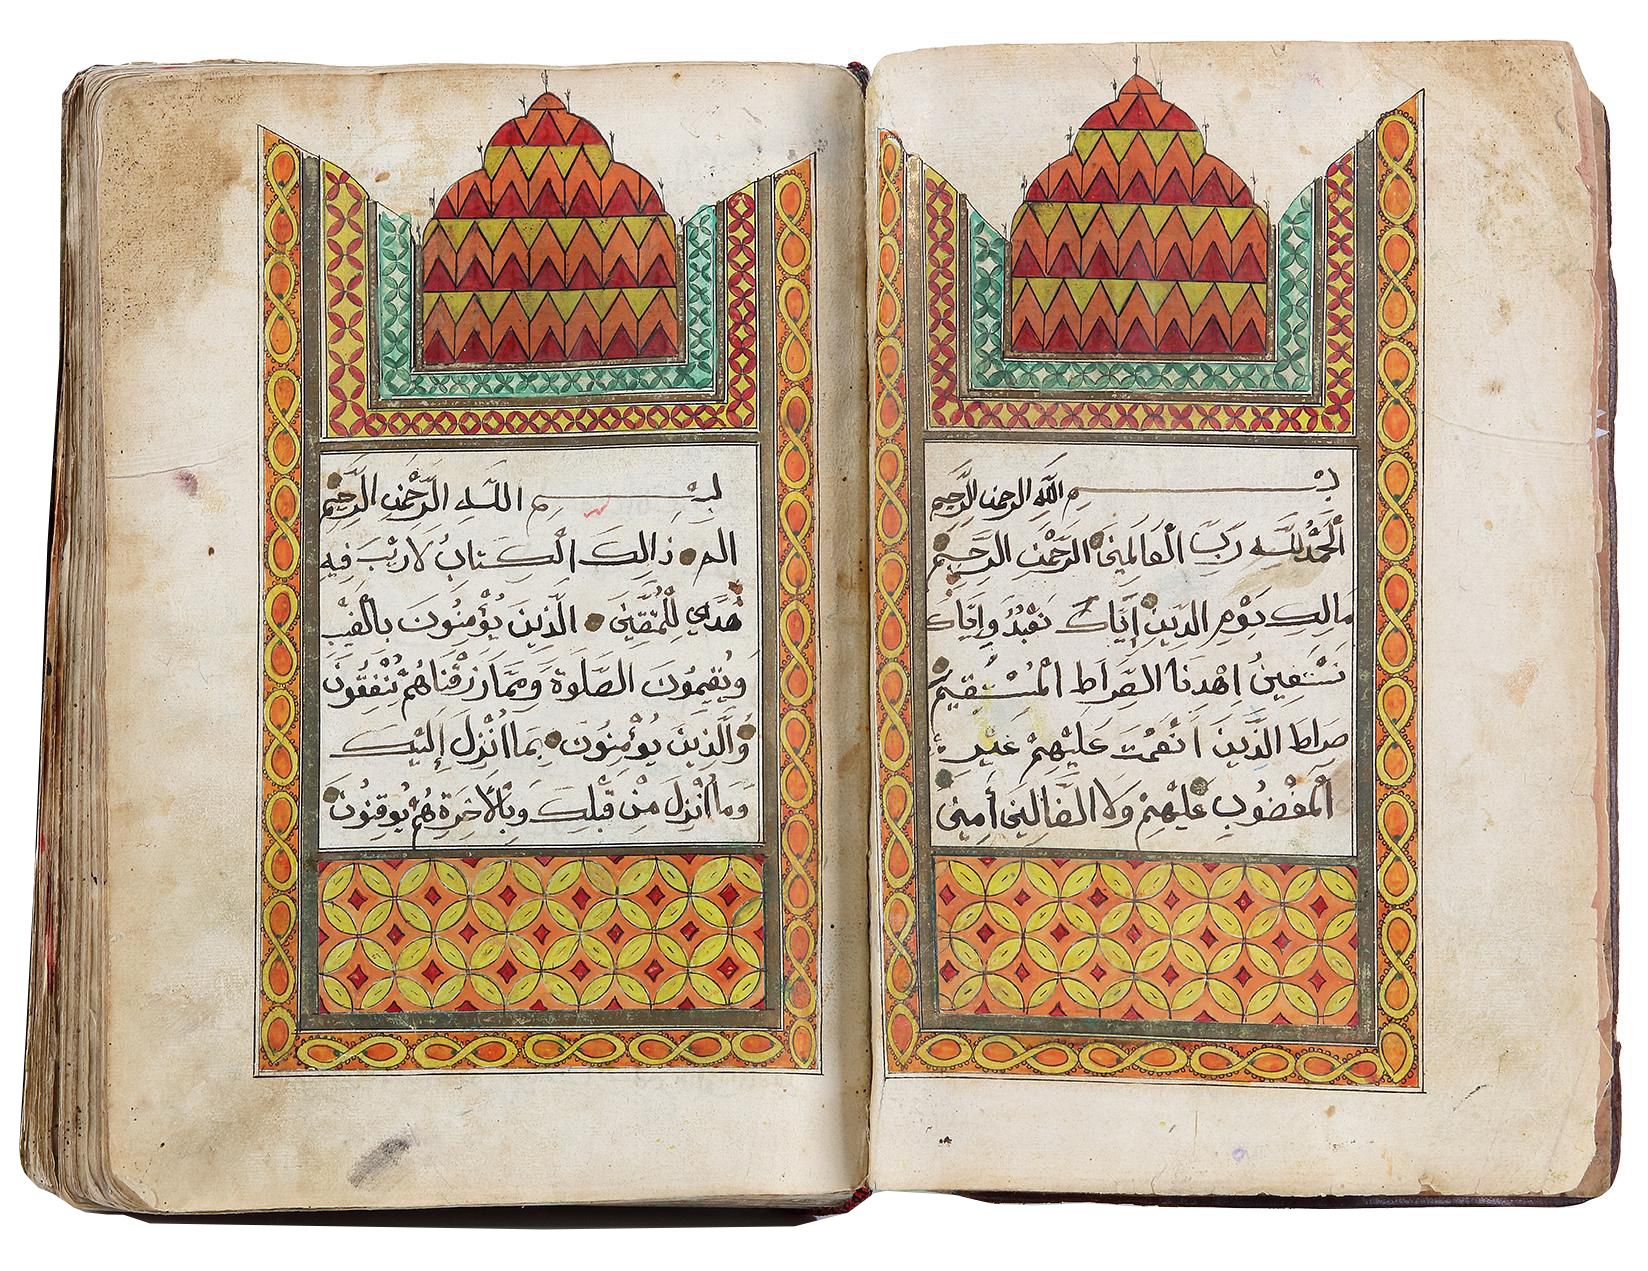 بِسْمِ اللَّهِ الرحمن الرَّحِيمِ
اَلْحَمْدُ لِلَّهِ رَبِّ الْعَالَمِينَ الرَّحْمٰنِ الرَّحِيمِ
مَالِكِ يَوْمِ الدِّينِ إِيَّاكَ نَعْبُدُ وَإِيَّاكَ
نَسْتَعِينُ اِهْدِنَا الصِّرَاطَ الْمُسْتَقِيمَ
صِرَاطَ الَّذِينَ أَنْعَمْتَ عَلَيْهِمْ غَيْرِ
الْمَغْضُوبِ عَلَيْهِمْ وَلَا الضَّالِّينَ أَمِينَ
بِسْمِ اللَّهِ الرَّحْمٰنِ الرَّحِيمِ
الم ذَالِكَ الْكِتَابُ لَا رَيْبَ فِيهِ
هُدًى لِلْمُتَّقِينَ الَّذِينَ يُؤْمِنُونَ بِالْغَيْبِ
وَيُقِيمُونَ الصَّلَوةَ وَمِمَّا رَزَقْنَاهُمْ يُنْفِقُونَ
وَالَّذِينَ يُؤْمِنُونَ بِمَا أُنْزِلَ إِلَيْكَ
وَمَا أُنْزِلَ مِنْ قَبْلِكَ وَبِالْأَخِرَةِ هُمْ يُوقِنُونَ